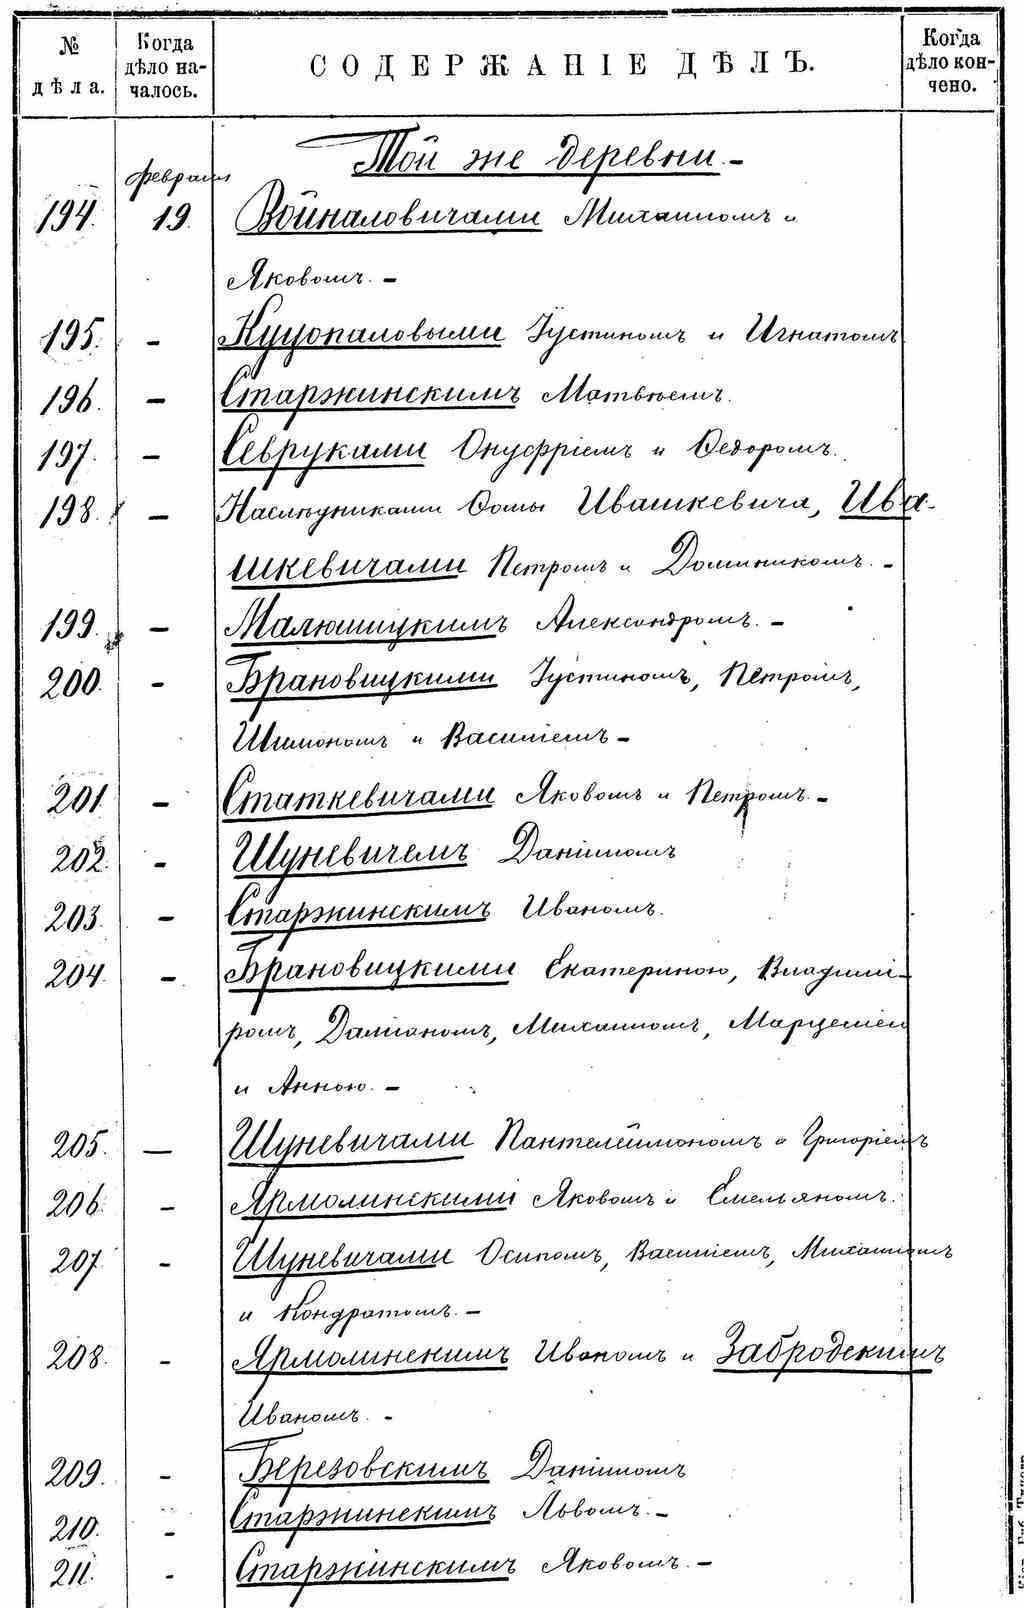 № дѣла.
Когда дѣло началось.
СОДЕРЖАНІЕ ДѢЛЪ.
Когда дѣло кончено.
Той же деревни.-
февраля
194. 19. Войналовичами Михаиломъ и
Яковомъ. -
195. - Куцопаловыми Іустиномъ и Игнатомъ
196. - Старжинскимъ Матвѣемъ.
197. - Севруками Онуфріемъ и Ѳедоромъ.
198. - Наслѣдниками Ѳомы Ивашкевича, Ива-
шкевичами Петромъ и Доминикомъ. -
199. - Малюшицкимъ Александромъ. -
200. - Брановицкими Іустиномъ, Петромъ,
Шимономъ и Василіемъ -
201. - Статкевичами Яковомъ и Петромъ. -
202. - Шуневичемъ Даніиломъ
203. - Старжинскимъ Иваномъ.
204. - Брановицкими Екатериною, Владимі-
ромъ, Даміаномъ, Михаиломъ,
и Анною. -
205. - Шуневичами Пантелеймономъ и Григоріемъ
206. - Ярмолинскими Яковомъ и Емельяномъ.
207. - Шуневичами Осипомъ, Василіемъ, Михаиломъ
и Кондратомъ. -
208. - Ярмолинскимъ Иваномъ и Забродскимъ
Иваномъ. -
209. - Березовскимъ Даніиломъ
210. - Старжинскимъ Львомъ. -
211. - Старжинскимъ Яковомъ. -